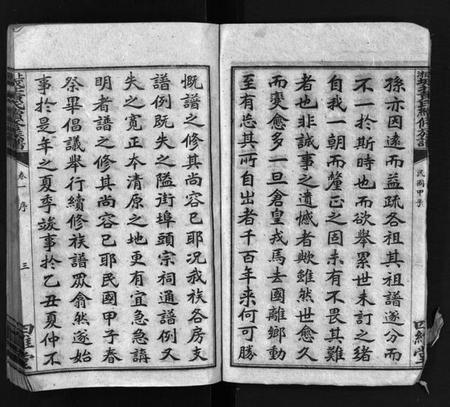 孫亦因遠而益疏各祖其祖譜遂分而
不一於斯時也而欲舉累世未訂之緒
自我一朝而釐正之固未有不畏其難
者也非誠事之遺憾者歟雖然世愈久
而變愈多一旦倉皇戎馬去國離鄉動
至有忘其所自出者千百年來何可勝
民國甲子
四維堂
慨譜之修其尚容已耶况我族各房支
譜例既失之隘街埠頭宗祠通譜例又
失之寬正本清原之地更有宜急急講
明者譜之修其尚容已耶民國甲子春
祭畢倡議舉行續修族譜眾僉然遂始
事於是年之夏季竣事於乙丑夏仲不
卷一序
三
四維堂